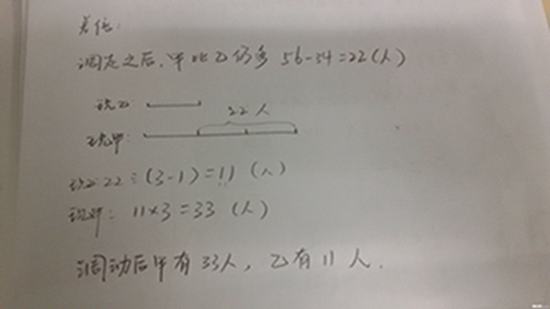 差倍:
调走之后,甲比乙仍多 56-34=22(人)
现乙:
22人
现甲:
现乙:22÷(3-1)=11 (人)
现甲: 11×3=33 (人)
调动后甲有33人,乙有11人.